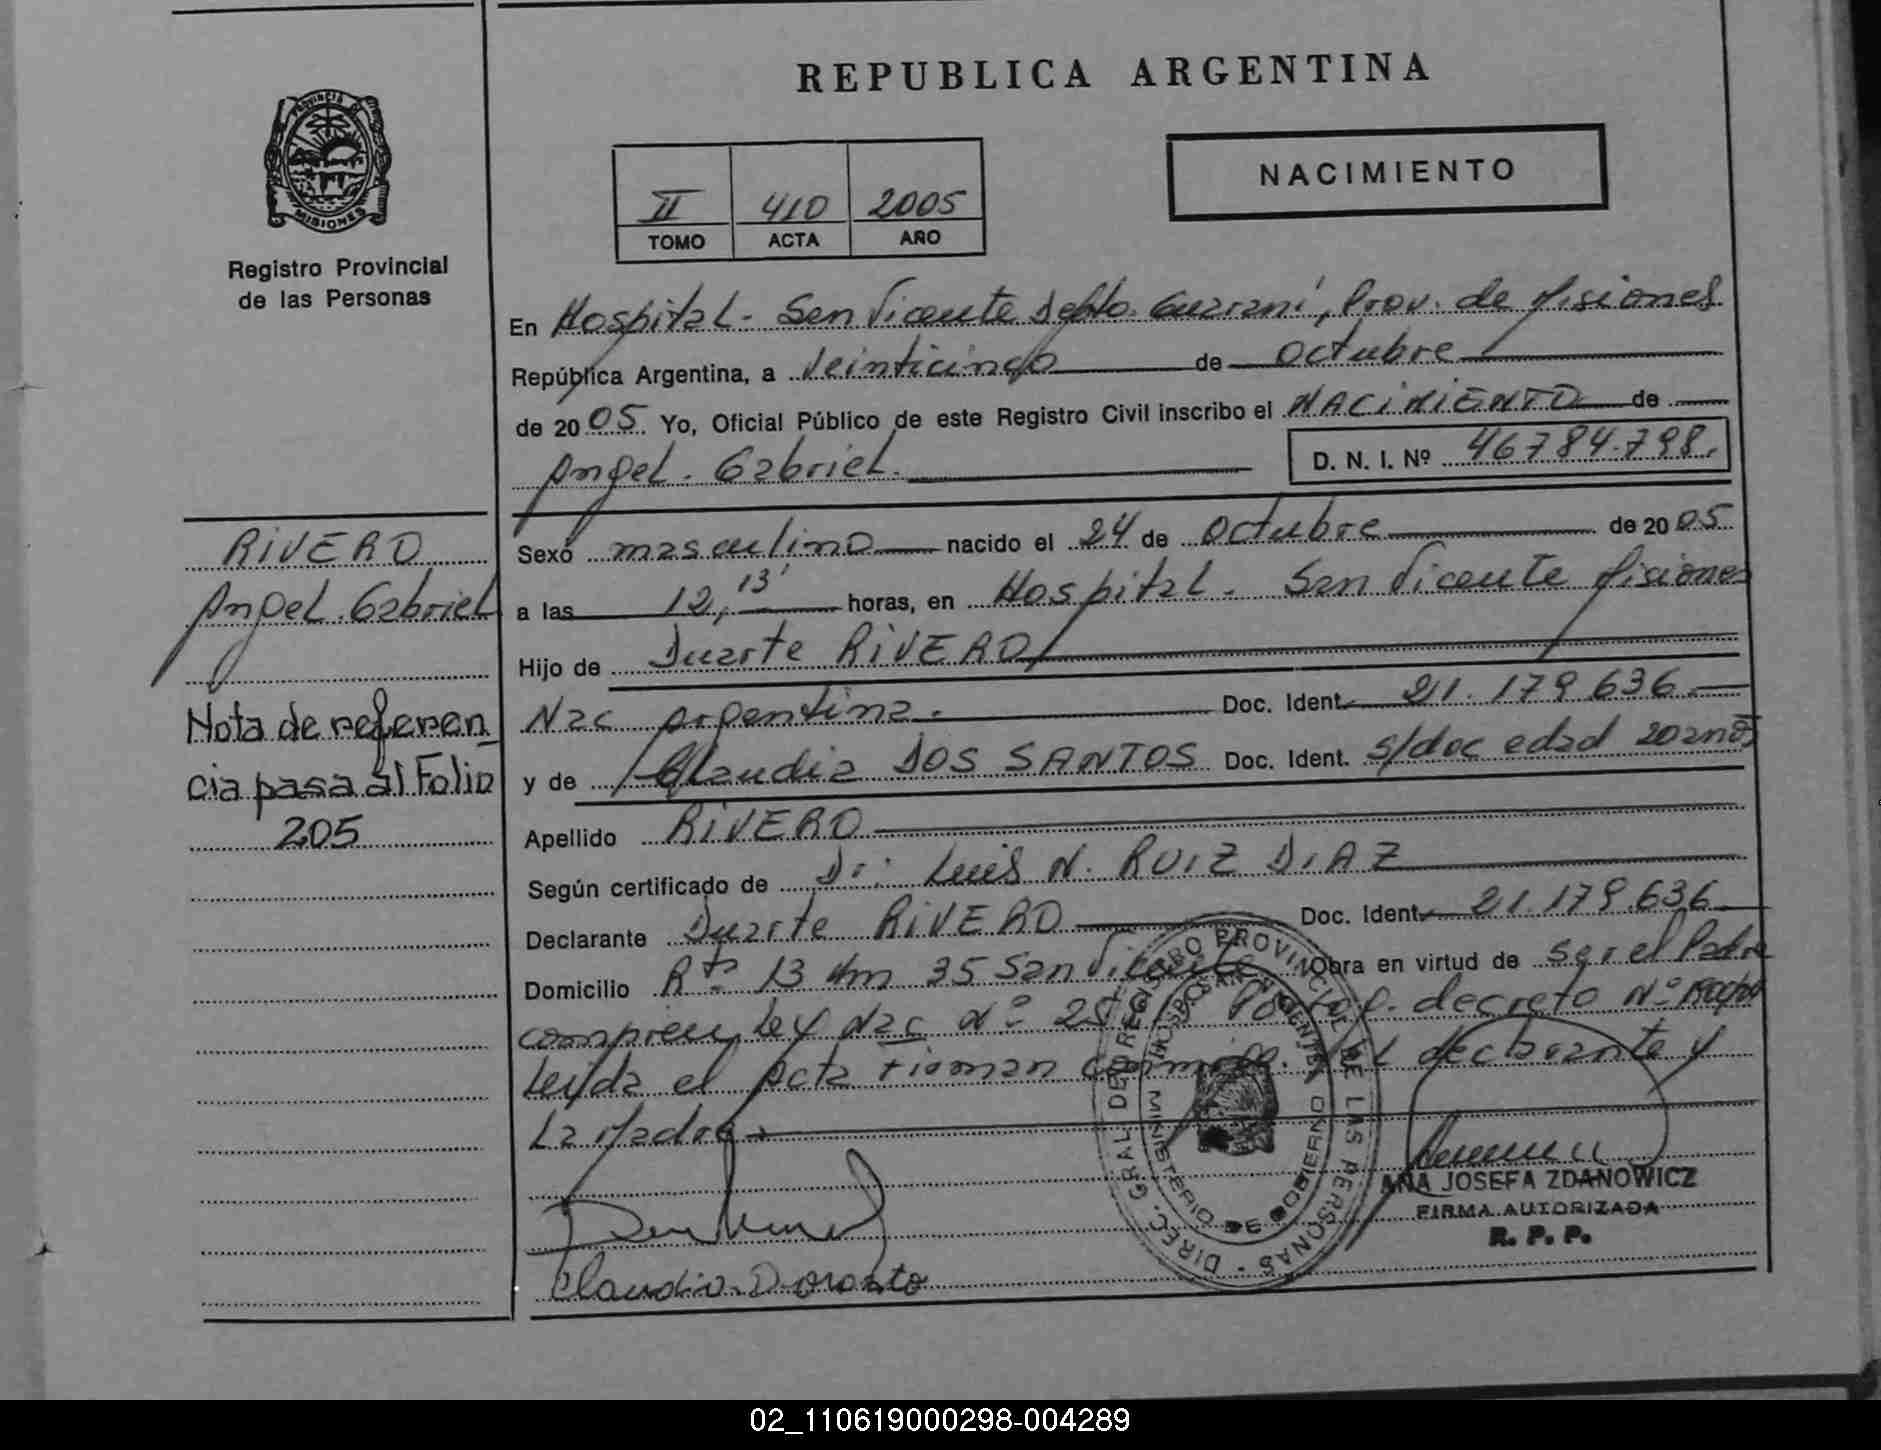 REPUBLICA ARGENTINA
PROVINCIA DE
MISIONES
Registro Provincial
de las Personas
II 410 2005
TOMO ACTA AÑO
NACIMIENTO
En Hospital - San Vicente Depto. Guarani, Prov. de Misiones
República Argentina, a Veinticinco de Octubre
de 2005 Yo, Oficial Público de este Registro Civil inscribo el NACIMIENTO de
Angel. Gabriel. D. N. I. Nº 46784.798.
RIVERO
Angel. Gabriel
Nota de referen
cia pasa al Folio
205
Sexo masculino nacido el 24 de Octubre de 2005
a las 12,13' horas, en Hospital - San Vicente Misiones
Hijo de Duarte RIVERO
Nac Argentina. Doc. Ident. 21.179.636
y de Claudia DOS SANTOS Doc. Ident. s/doc edad 20 anos
Apellido RIVERO
Según certificado de Dr: Luis N. RUIZ DIAZ
Declarante Duarte RIVERO Doc. Ident. 21.179.636
Domicilio Rta 13 Km 35 San Vicente Obra en virtud de ser el Padre
Ley Nac Nº decreto Nº
Leida el Acta Firman conmigo. El declarante y
La Madre.
DIREC. GRAL DEL REGISTRO PROVINCIAL DE LAS PERSONAS
MINISTERIO DE GOBIERNO
ANA JOSEFA ZDANOWICZ
FIRMA AUTORIZADA
R. P. P.
Claudia
02_110619000298-004289